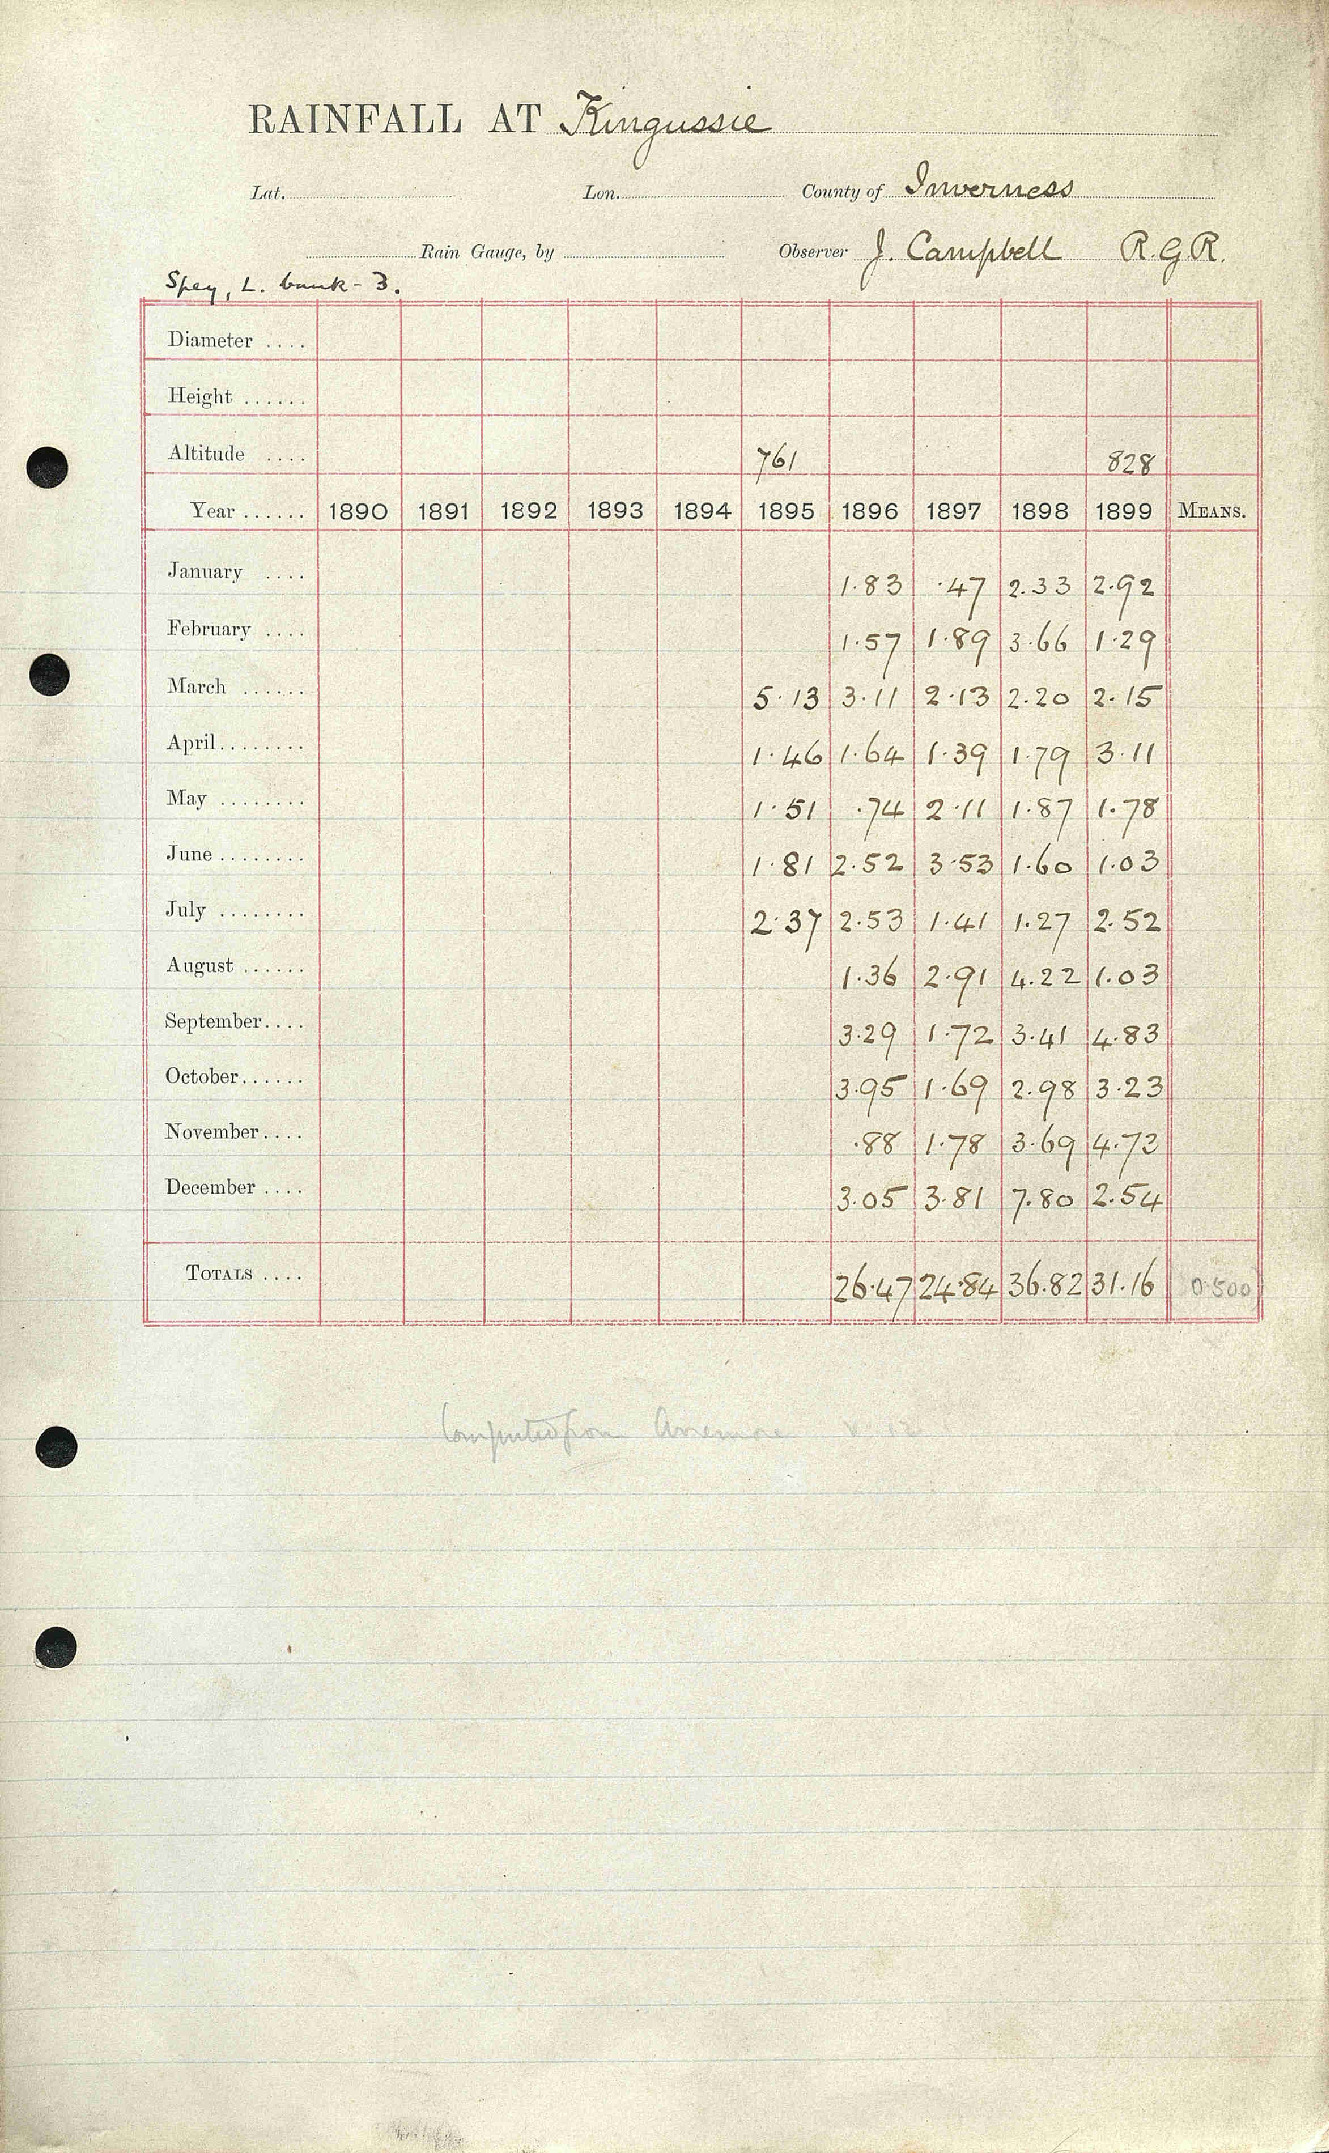 RAINFALL AT Kingussie
Lat. Lon. County of Inverness
Rain Gauge, by Observer J. Campbell R.G.R.
Spey, L. bank - 3.
Diameter ....
Height ......
Altitude .... 761 828
Year ...... 1890 1891 1892 1893 1894 1895 1896 1897 1898 1899 MEANS.
January .... 1.83 .47 2.33 2.92
February .... 1.57 1.89 3.66 1.29
March ...... 5.13 3.11 2.13 2.20 2.15
April ........ 1.46 1.64 1.39 1.79 3.11
May ........ 1.51 .74 2.11 1.87 1.78
June ........ 1.81 2.52 3.53 1.60 1.03
July ........ 2.37 2.53 1.41 1.27 2.52
August ...... 1.36 2.91 4.22 1.03
September .... 3.29 1.72 3.41 4.83
October ...... 3.95 1.69 2.98 3.23
November .... .88 1.78 3.69 4.73
December .... 3.05 3.81 7.80 2.54
TOTALS .... 26.47 24.84 36.82 31.16
Computed from